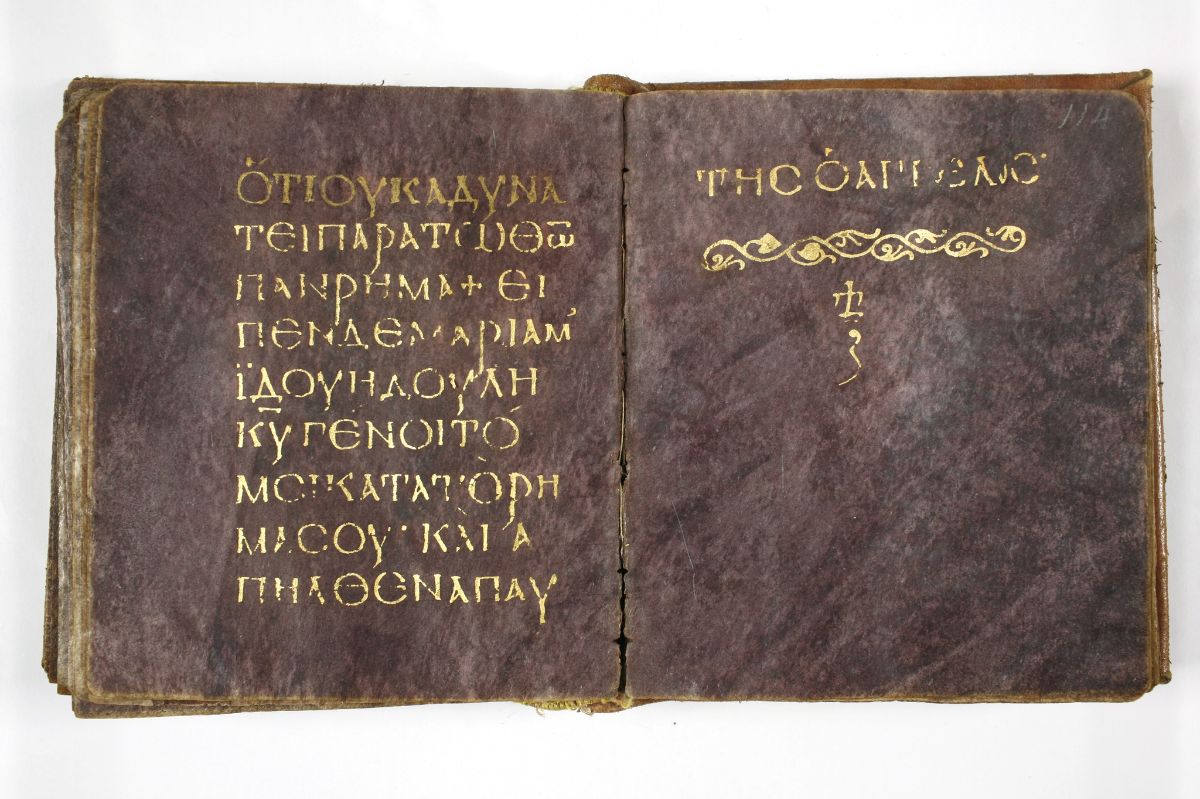 ὍΤΙΟΥΚΑΔΥΝΑ
ΤΕΙΠΑΡΑΤΩΘΩ̅
ΠΑΝΡΗΜΑ+ ΕΙ
ΠΕΝΔΕΜΑΡΙΑΜ'
ΪΔΟΥΗΔΟΥΛΗ
Κ̅Υ̅ ΓΕΝΟΙΤΟ
ΜΟΙΚΑΤΑΤΟΡΗ
ΜΑϹΟΥ· ΚΑΙΑ
ΠΗΛΘΕΝΑΠΑΥ
114
ΤΗϹ ὉΑΓΓΕΛΟϹ·